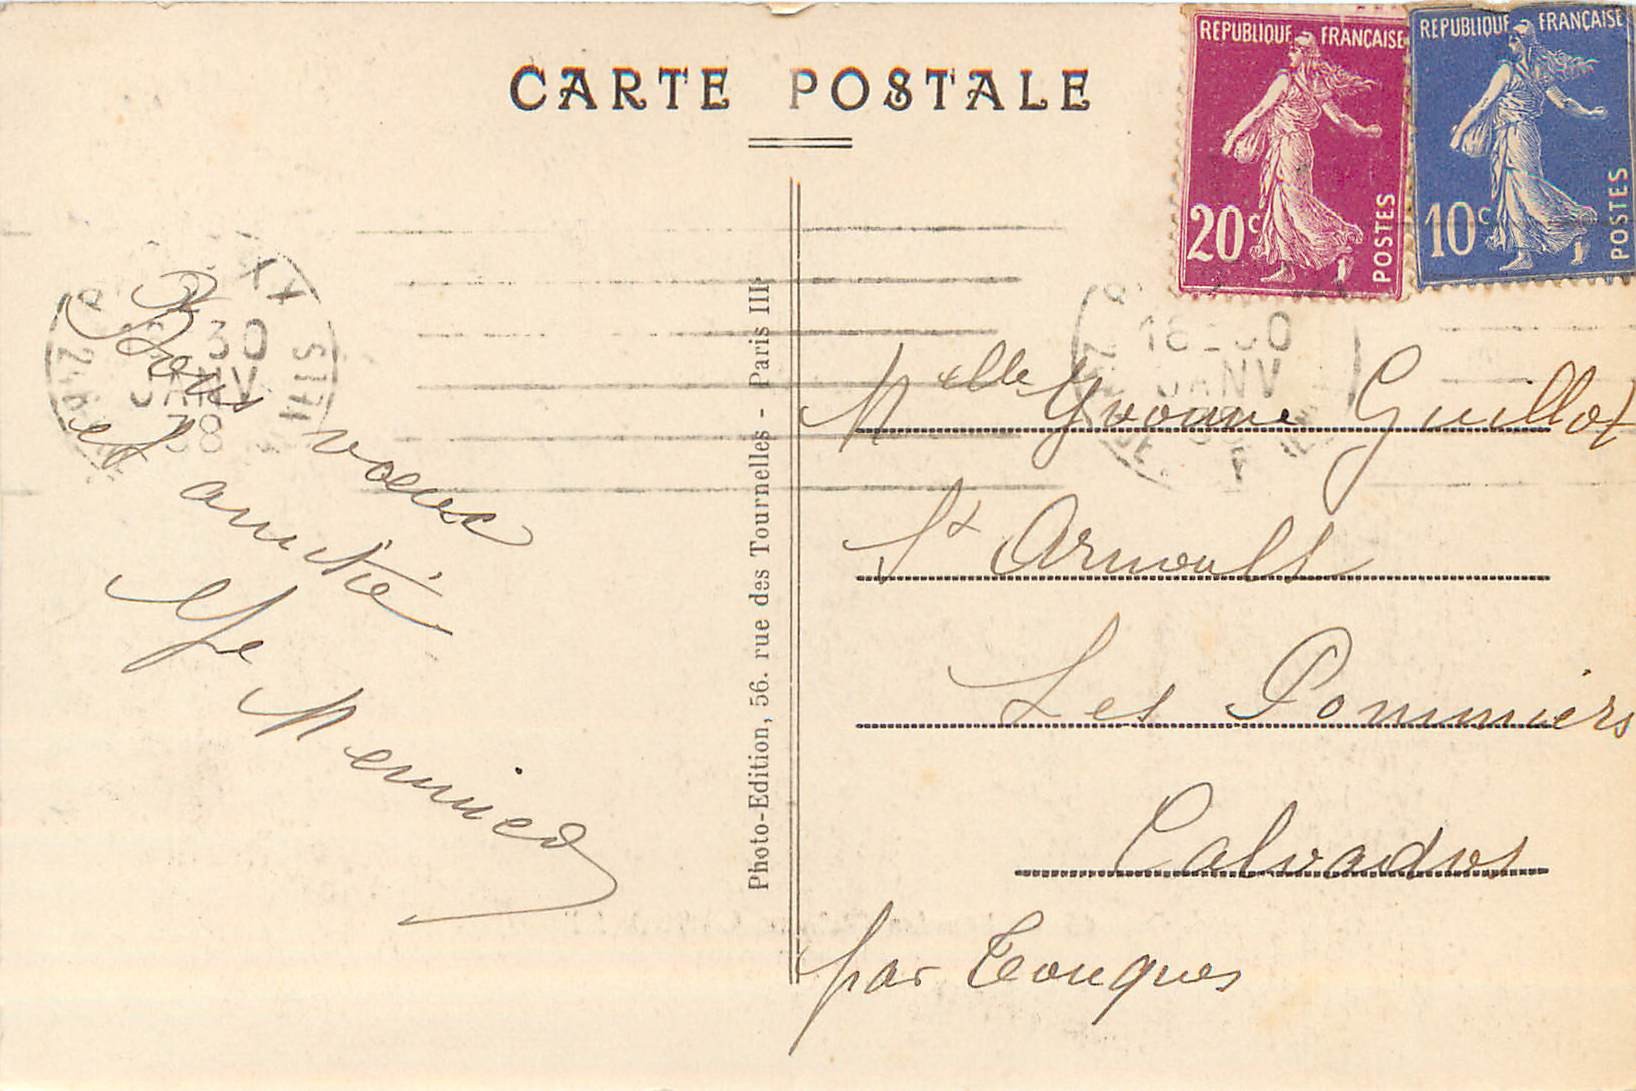 CARTE POSTALE
REPUBLIQUE FRANÇAISE
20c
POSTES
REPUBLIQUE FRANÇAISE
10c
POSTES
30
JANV
38
18
JANV
Bons voeux
et amitié
Photo-Edition, 56. rue des Tournelles - Paris III
Melle Yvonne Guillot
St Arnoult
Les Pommiers
Calvados
par Touques